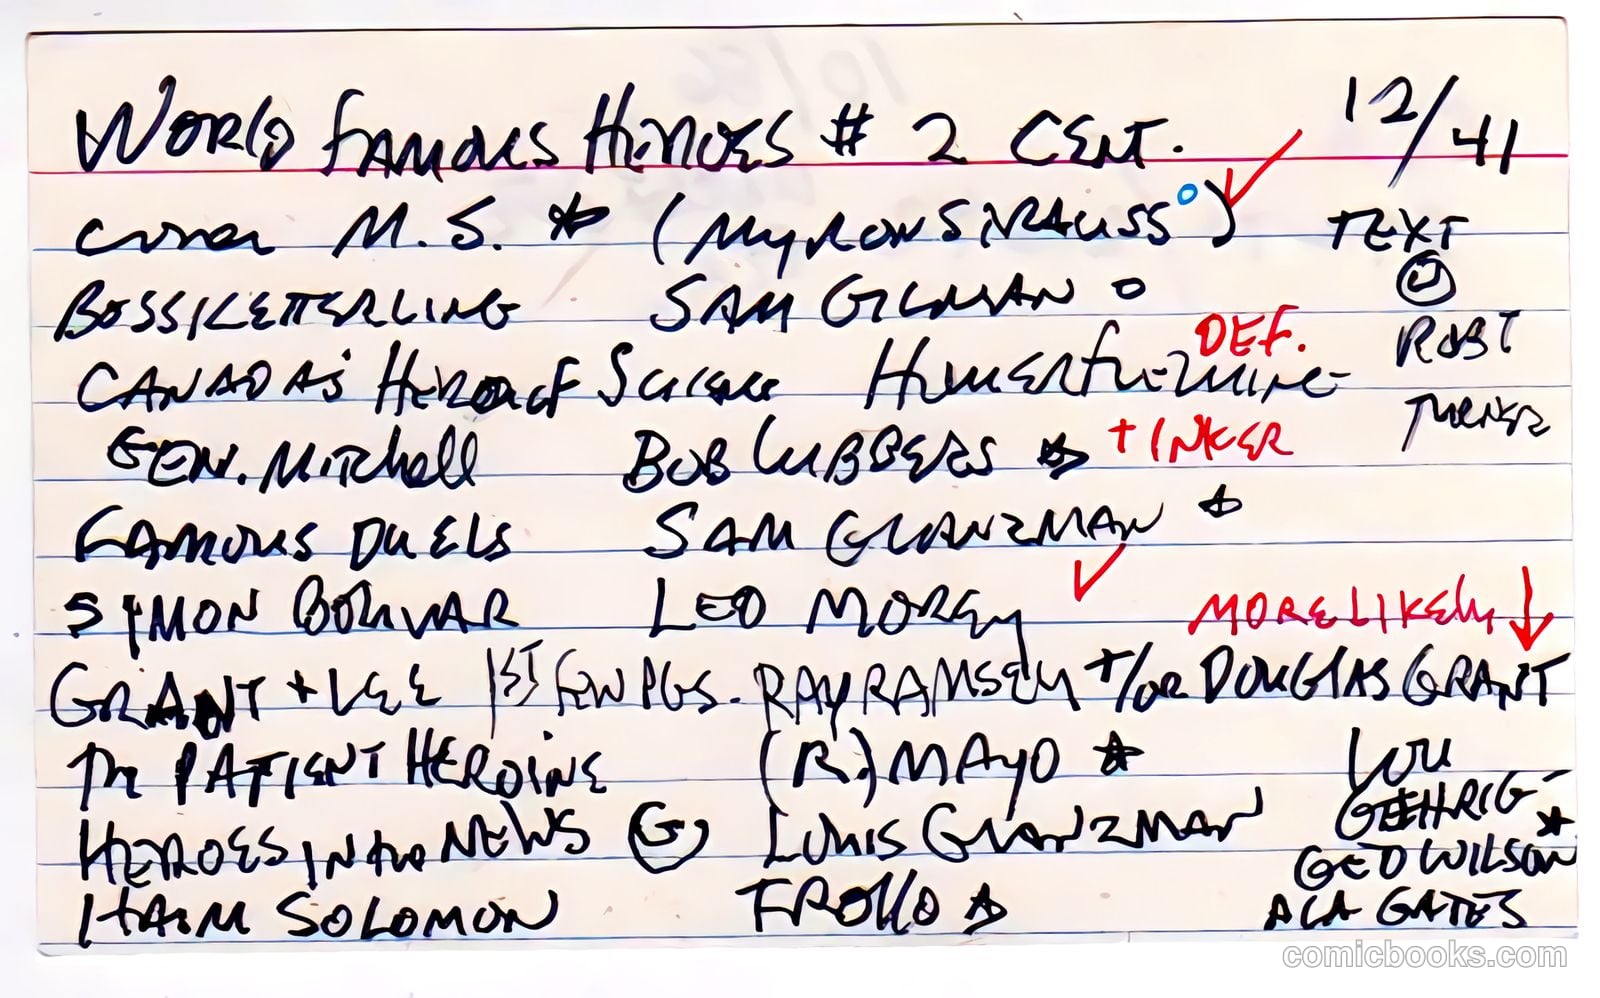 WORLD FAMOUS HEROES # 2 CENT. 12/41
COVER M.S. ☆ (MYRON STRAUSS°) ✓ TEXT
BOSS KETTERLING SAM GILMAN o
CANADA'S HERO OF SCIENCE HOMER FLEMING DEF. ROBT TURNER
GEN. MITCHELL BOB LUBBERS ☆ + INKER
FAMOUS DUELS SAM GLANZMAN ☆
SYMON BOLIVAR LEO MOREY ✓ MORE LIKELY ↓
GRANT + LEE 1ST FEW PGS. RAY RAMSEY +/OR DOUGLAS GRANT
THE PATIENT HEROINE (R.) MAYO ☆ LOU GEHRIG-
HEROES IN THE NEWS G LOUIS GLANZMAN GEO WILSON ☆
HAIM SOLOMON FROLLO ☆ ACA GATES
comicbooks.com